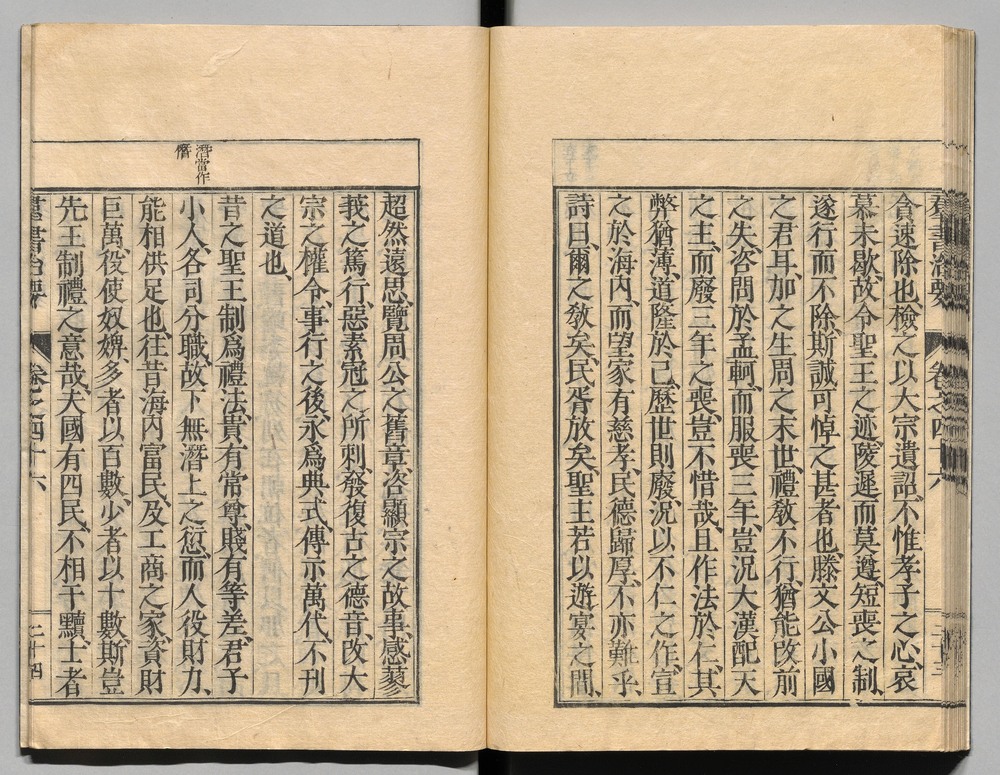 羣書治要　卷之四十六
貪速除也、檢之以大宗遺詔、不惟孝子之心、哀
慕未歇、故令聖王之迹陵遲而莫遵、短喪之制、
遂行而不除、斯誠可悼之甚者也、滕文公小國
之君耳、加之生周之末世、禮敎不行、猶能改前
之失、咨問於孟軻、而服喪三年、豈況大漢配天
之主、而廢三年之喪、豈不惜哉、且作法於仁、其
弊猶薄、道隆於己、歷世則廢、況以不仁之作、宣
之於海內、而望家有慈孝、民德歸厚、不亦難乎、
詩曰、爾之敎矣、民胥放矣、聖主若以遊宴之間、
超然遠思、覽周公之舊章、咨顯宗之故事、感蓼
莪之篤行、惡素冠之所刺、發復古之德音、改大
宗之權令、事行之後、永爲典式、傳示萬代、不刊
之道也、
昔之聖王制爲禮法、貴有常尊、賤有等差、君子
小人、各司分職、故下無潛上之愆、而人役財力、
能相供足也、往昔海內富民、及工商之家、資財
巨萬、役使奴婢、多者以百數、少者以十數、斯豈
先王制禮之意哉、夫國有四民、不相干黷、士者
潛當作
僭
羣書治要　卷之四十六　二十四